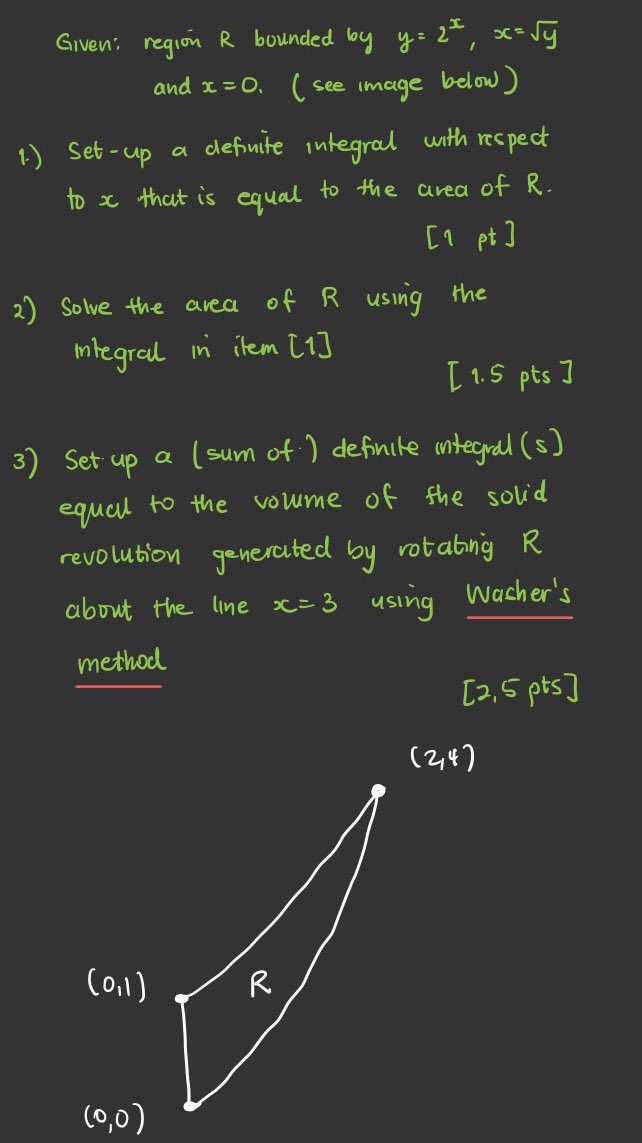 Given: region R bounded by y = 2^x, x = √y
and x = 0. (see image below)
1.) Set-up a definite integral with respect
to x that is equal to the area of R.
[1 pt]
2) Solve the area of R using the
integral in item [1]
[1.5 pts]
3) Set up a (sum of) definite integral(s)
equal to the volume of the solid
revolution generated by rotating R
about the line x=3 using Washer's
method
[2,5 pts]
(2,4)
(0,1)
R
(0,0)